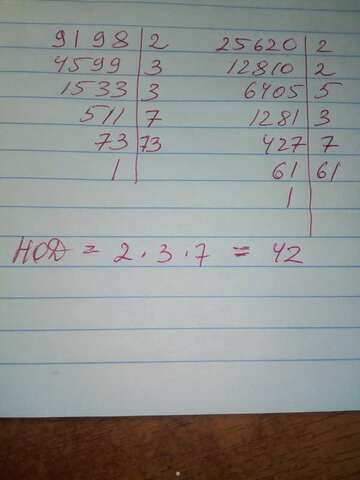 9198 | 2 25620 | 2
4599 | 3 12810 | 2
1533 | 3 6405 | 5
511 | 7 1281 | 3
73 | 73 427 | 7
1 | 61 | 61
1 |
НОД = 2 · 3 · 7 = 42